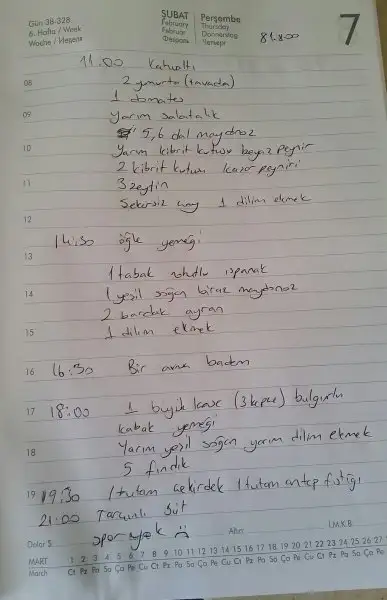 Gün 38-328
6. Hafta / Week
Woche / Неделя
ŞUBAT
February
Februar
Февраль
Perşembe
Thursday
Donnerstag
Четверг
7
11.00 Kahvaltı
08
2 yumurta (tavada)
1 domates
09
yarım salatalık
5,6 dal maydnoz
10
yarım kibrit kutusu beyaz peynir
2 kibrit kutusu kaşar peyniri
11
3 zeytin
Şekersiz çay 1 dilim ekmek
12
14:30 öğle yemeği
13
1 tabak nohutlu ıspanak
14
1 yeşil soğan biraz maydanoz
2 bardak ayran
15
1 dilim ekmek
16 16:30 Bir avuç badem
17 18:00 1 büyük kase (3 kepçe) bulgurlu
kabak yemeği
18
Yarım yeşil soğan yarım dilim ekmek
5 fındık
19 19.30 1 tutam çekirdek 1 tutam antep fıstığı
21:00 Tarçınlı süt
spor yok
Dolar $:
Altın:
I.M.K.B.
MART
March
1 2 3 4 5 6 7 8 9 10 11 12 13 14 15 16 17 18 19 20 21 22 23 24 25 26 27
Ct Pz Pa Sa Ça Pe Cu Ct Pz Pa Sa Ça Pe Cu Ct Pz Pa Sa Ça Pe Cu Ct Pz Pa Sa Ça Pe